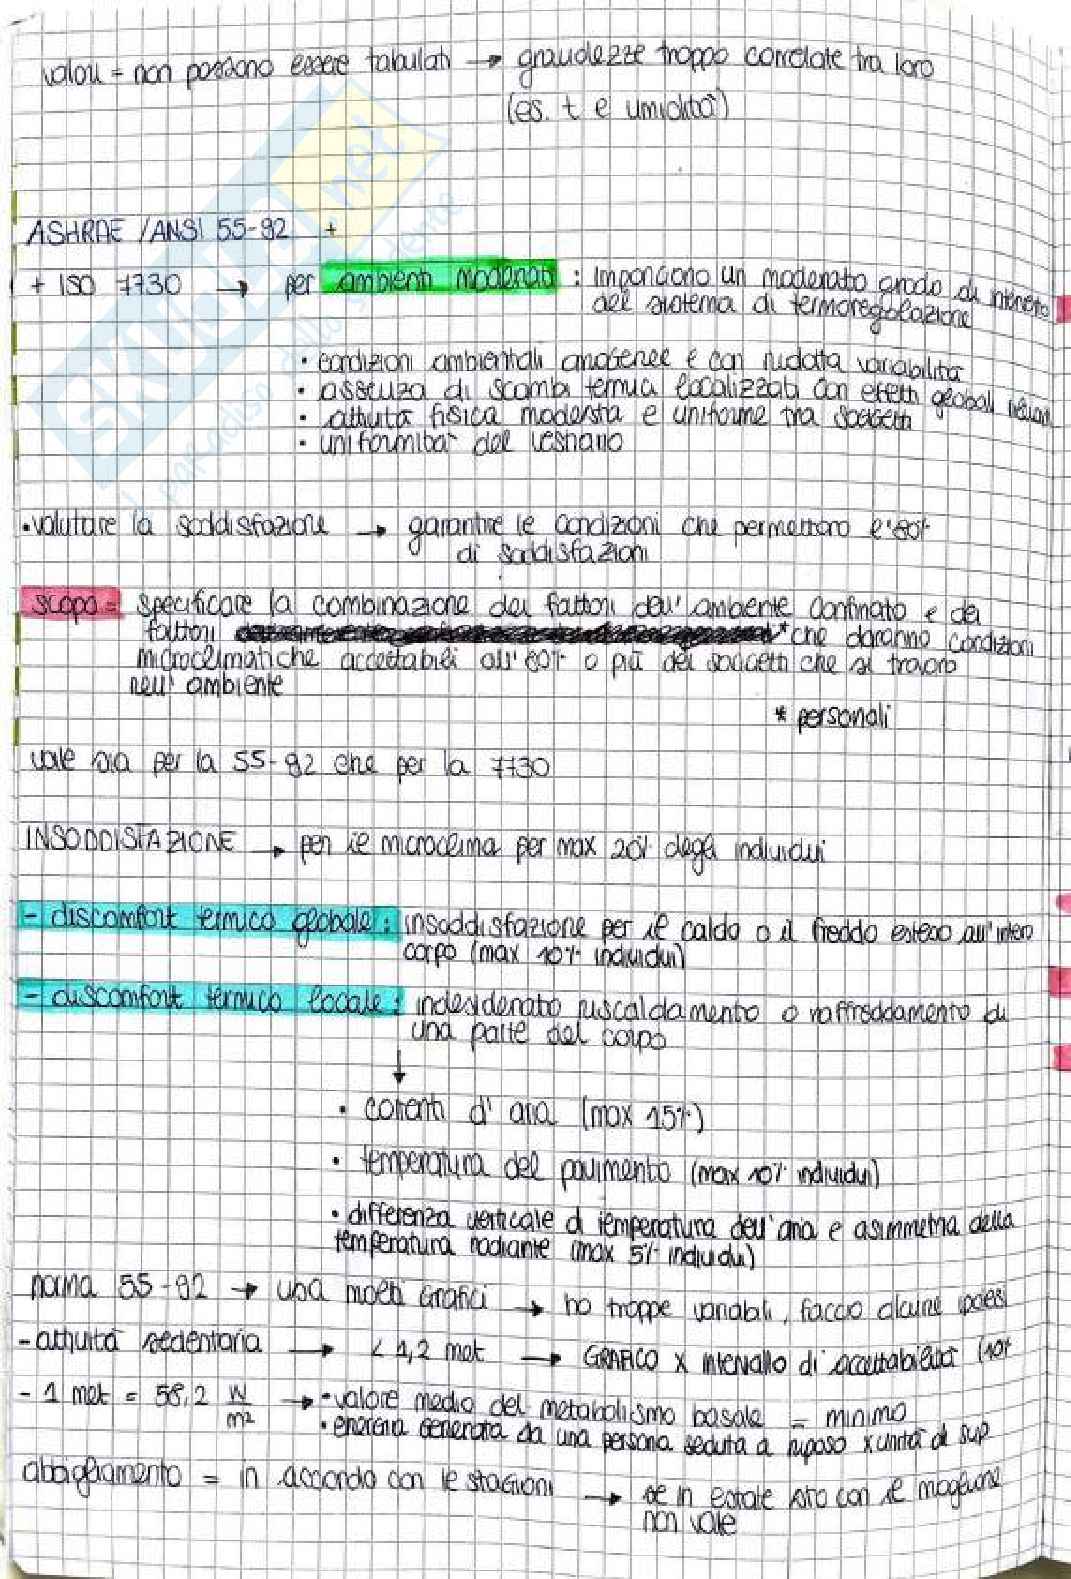 valori = non possono essere tabulati → grandezze troppo correlate tra loro
(es. t e umidità)
ASHRAE / ANSI 55-92 +
+ ISO 7730 → per ambienti moderati : impongono un moderato grado di intervento
del sistema di termoregolazione
• condizioni ambientali omogenee e con ridotta variabilità
• assenza di scambi termici localizzati con effetti globali rilevanti
• attività fisica modesta e uniforme tra soggetti
• uniformità del vestiario
• valutare la soddisfazione → garantire le condizioni che permettono l'80%
di soddisfazioni
scopo = specificare la combinazione dei fattori dell'ambiente confinato e dei
fattori * che daranno condizioni
microclimatiche accettabili all'80% o più dei soggetti che si trovano
nell'ambiente
* personali
vale sia per la 55-92 che per la 7730
INSODDISFAZIONE → per il microclima per max 20% degli individui
- discomfort termico globale : insoddisfazione per il caldo o il freddo esteso all'intero
corpo (max 10% individui)
- discomfort termico locale : indesiderato riscaldamento o raffreddamento di
una parte del corpo
↓
• correnti d'aria (max 15%)
• temperatura del pavimento (max 10% individui)
• differenza verticale di temperatura dell'aria e asimmetria della
temperatura radiante (max 5% individui)
norma 55-92 → usa molti grafici → ho troppe variabili, faccio alcune ipotesi
- attività sedentaria → < 1,2 met → GRAFICO x intervallo di accettabilità (10%
- 1 met = 58,2 W/m² → • valore medio del metabolismo basale = minimo
• energia generata da una persona seduta a riposo x unità di sup
abbigliamento = in accordo con le stagioni → se in estate sto con il maglione
non vale
SKUOLA.net
il paradiso dello studente